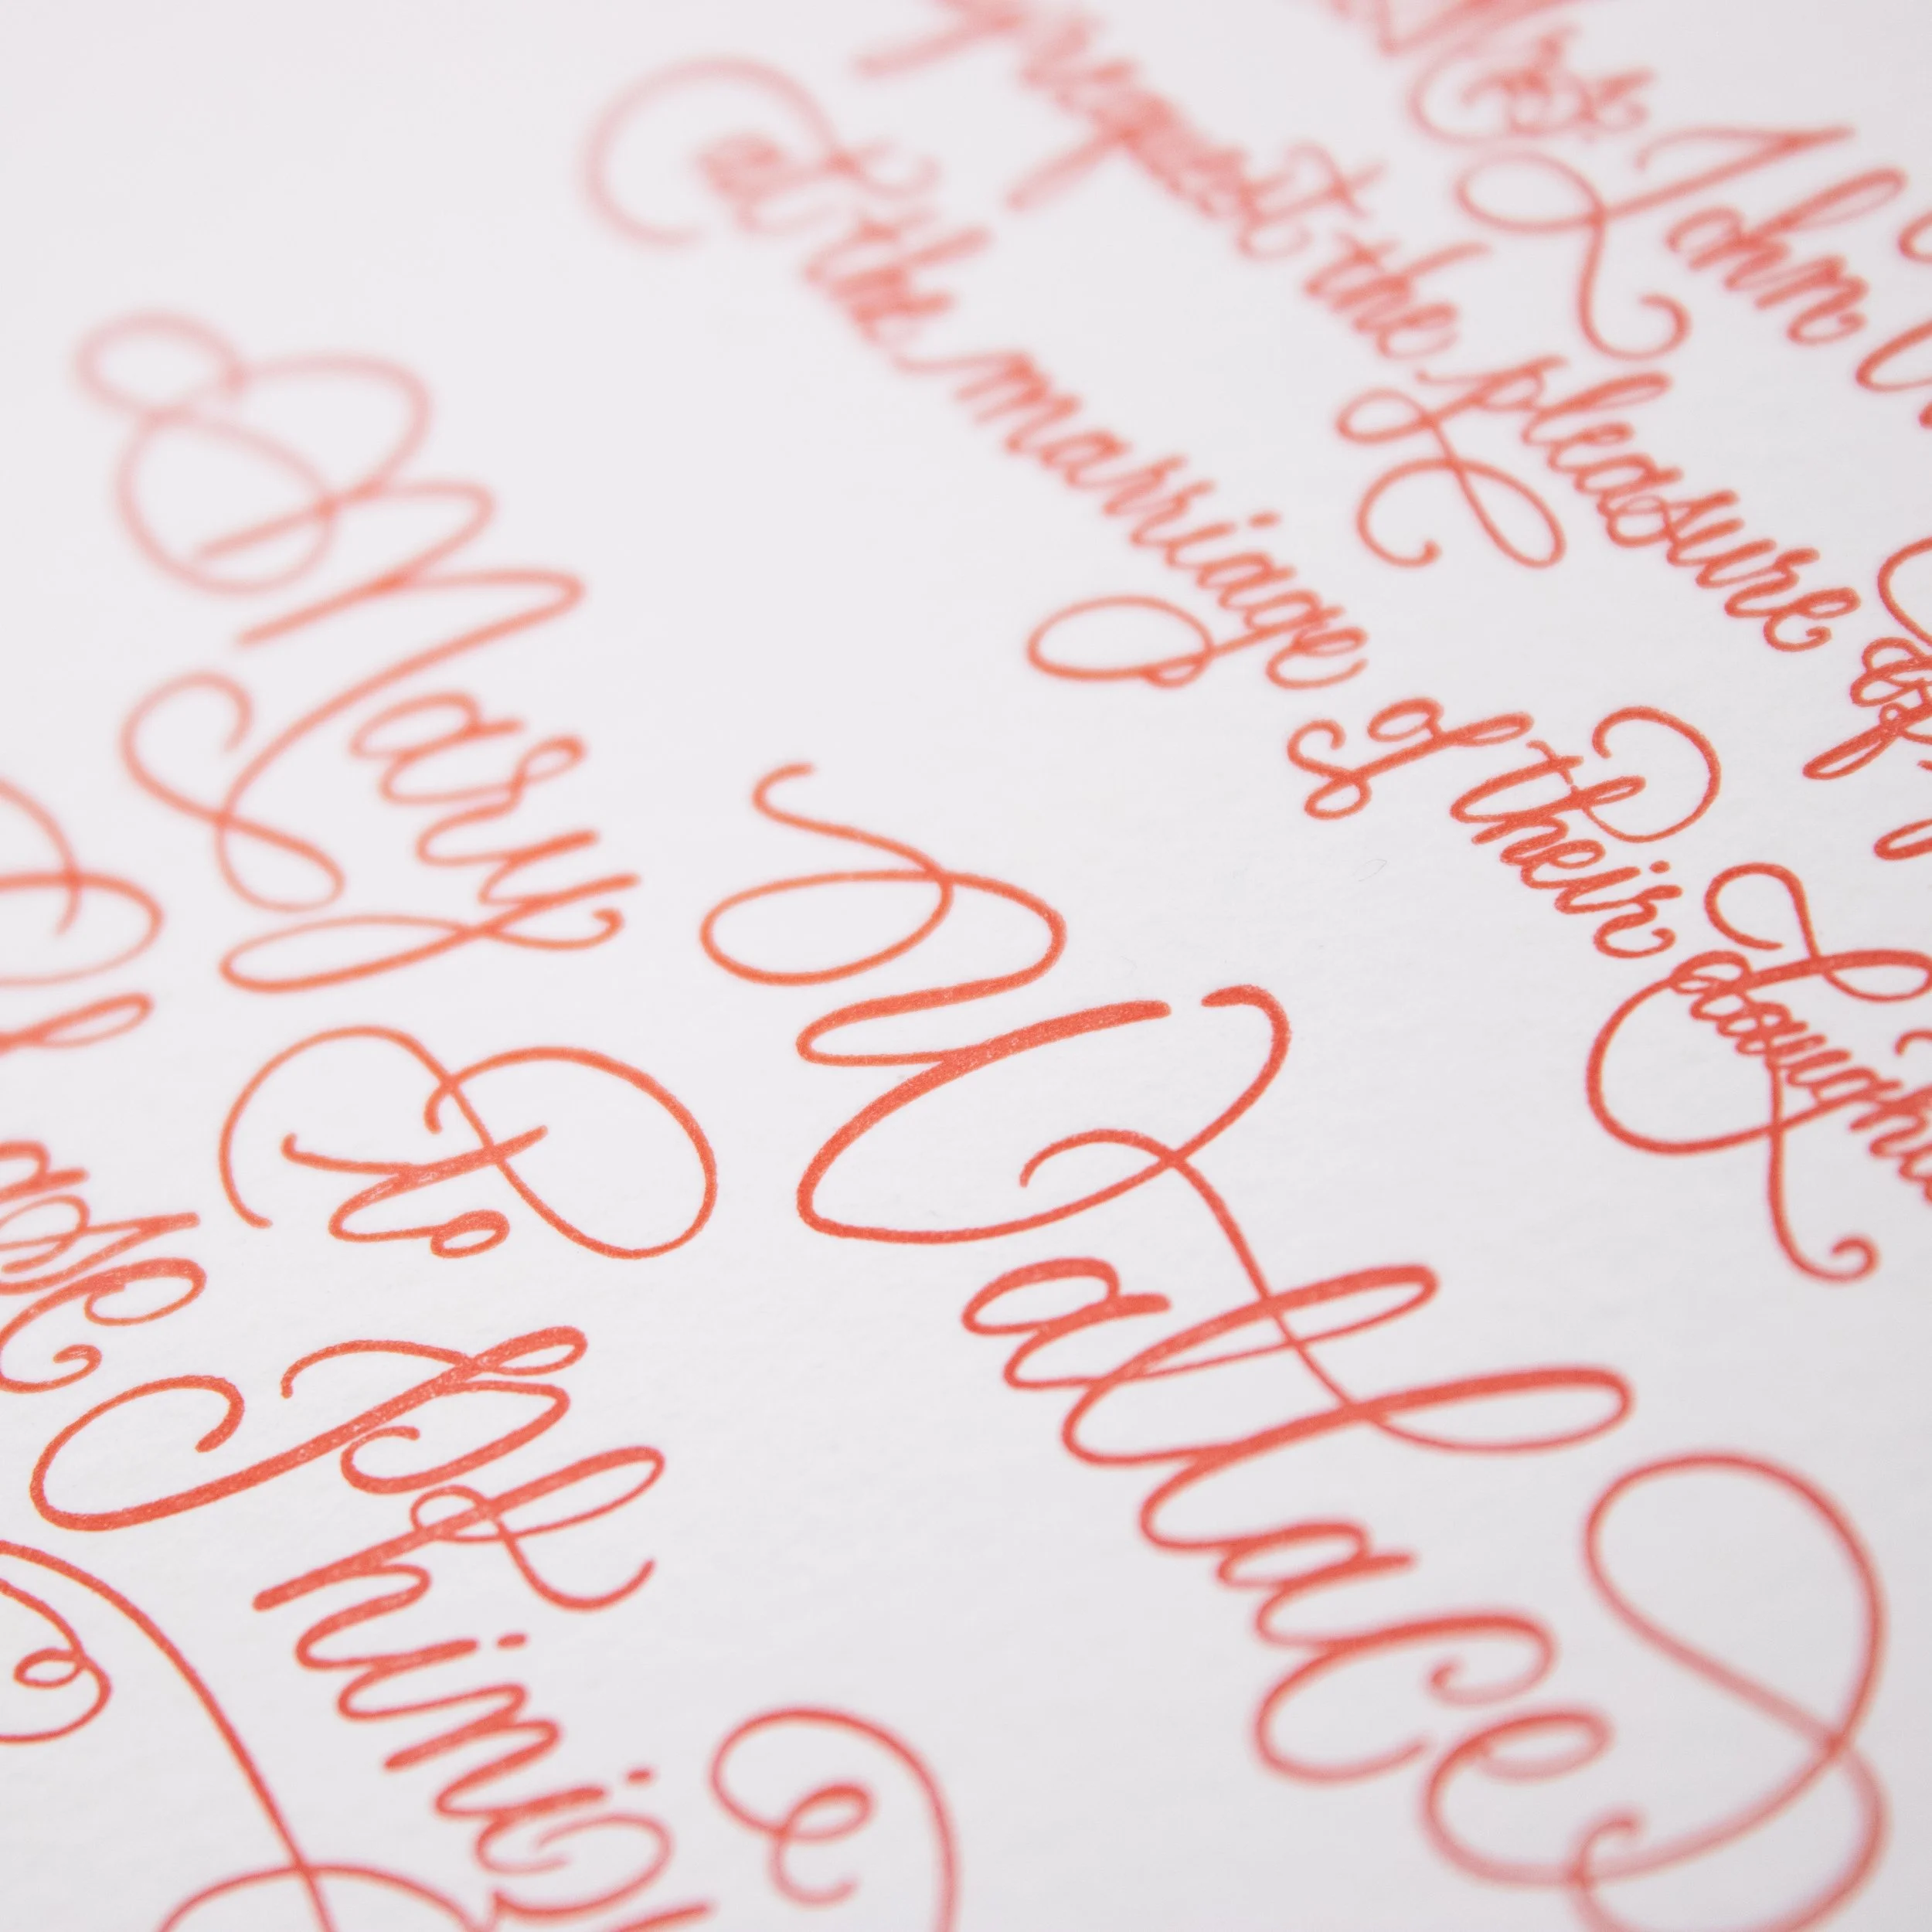 Mrs. John
request the pleasure of
at the marriage of their daught
Mary Wallace
to
Phiniz